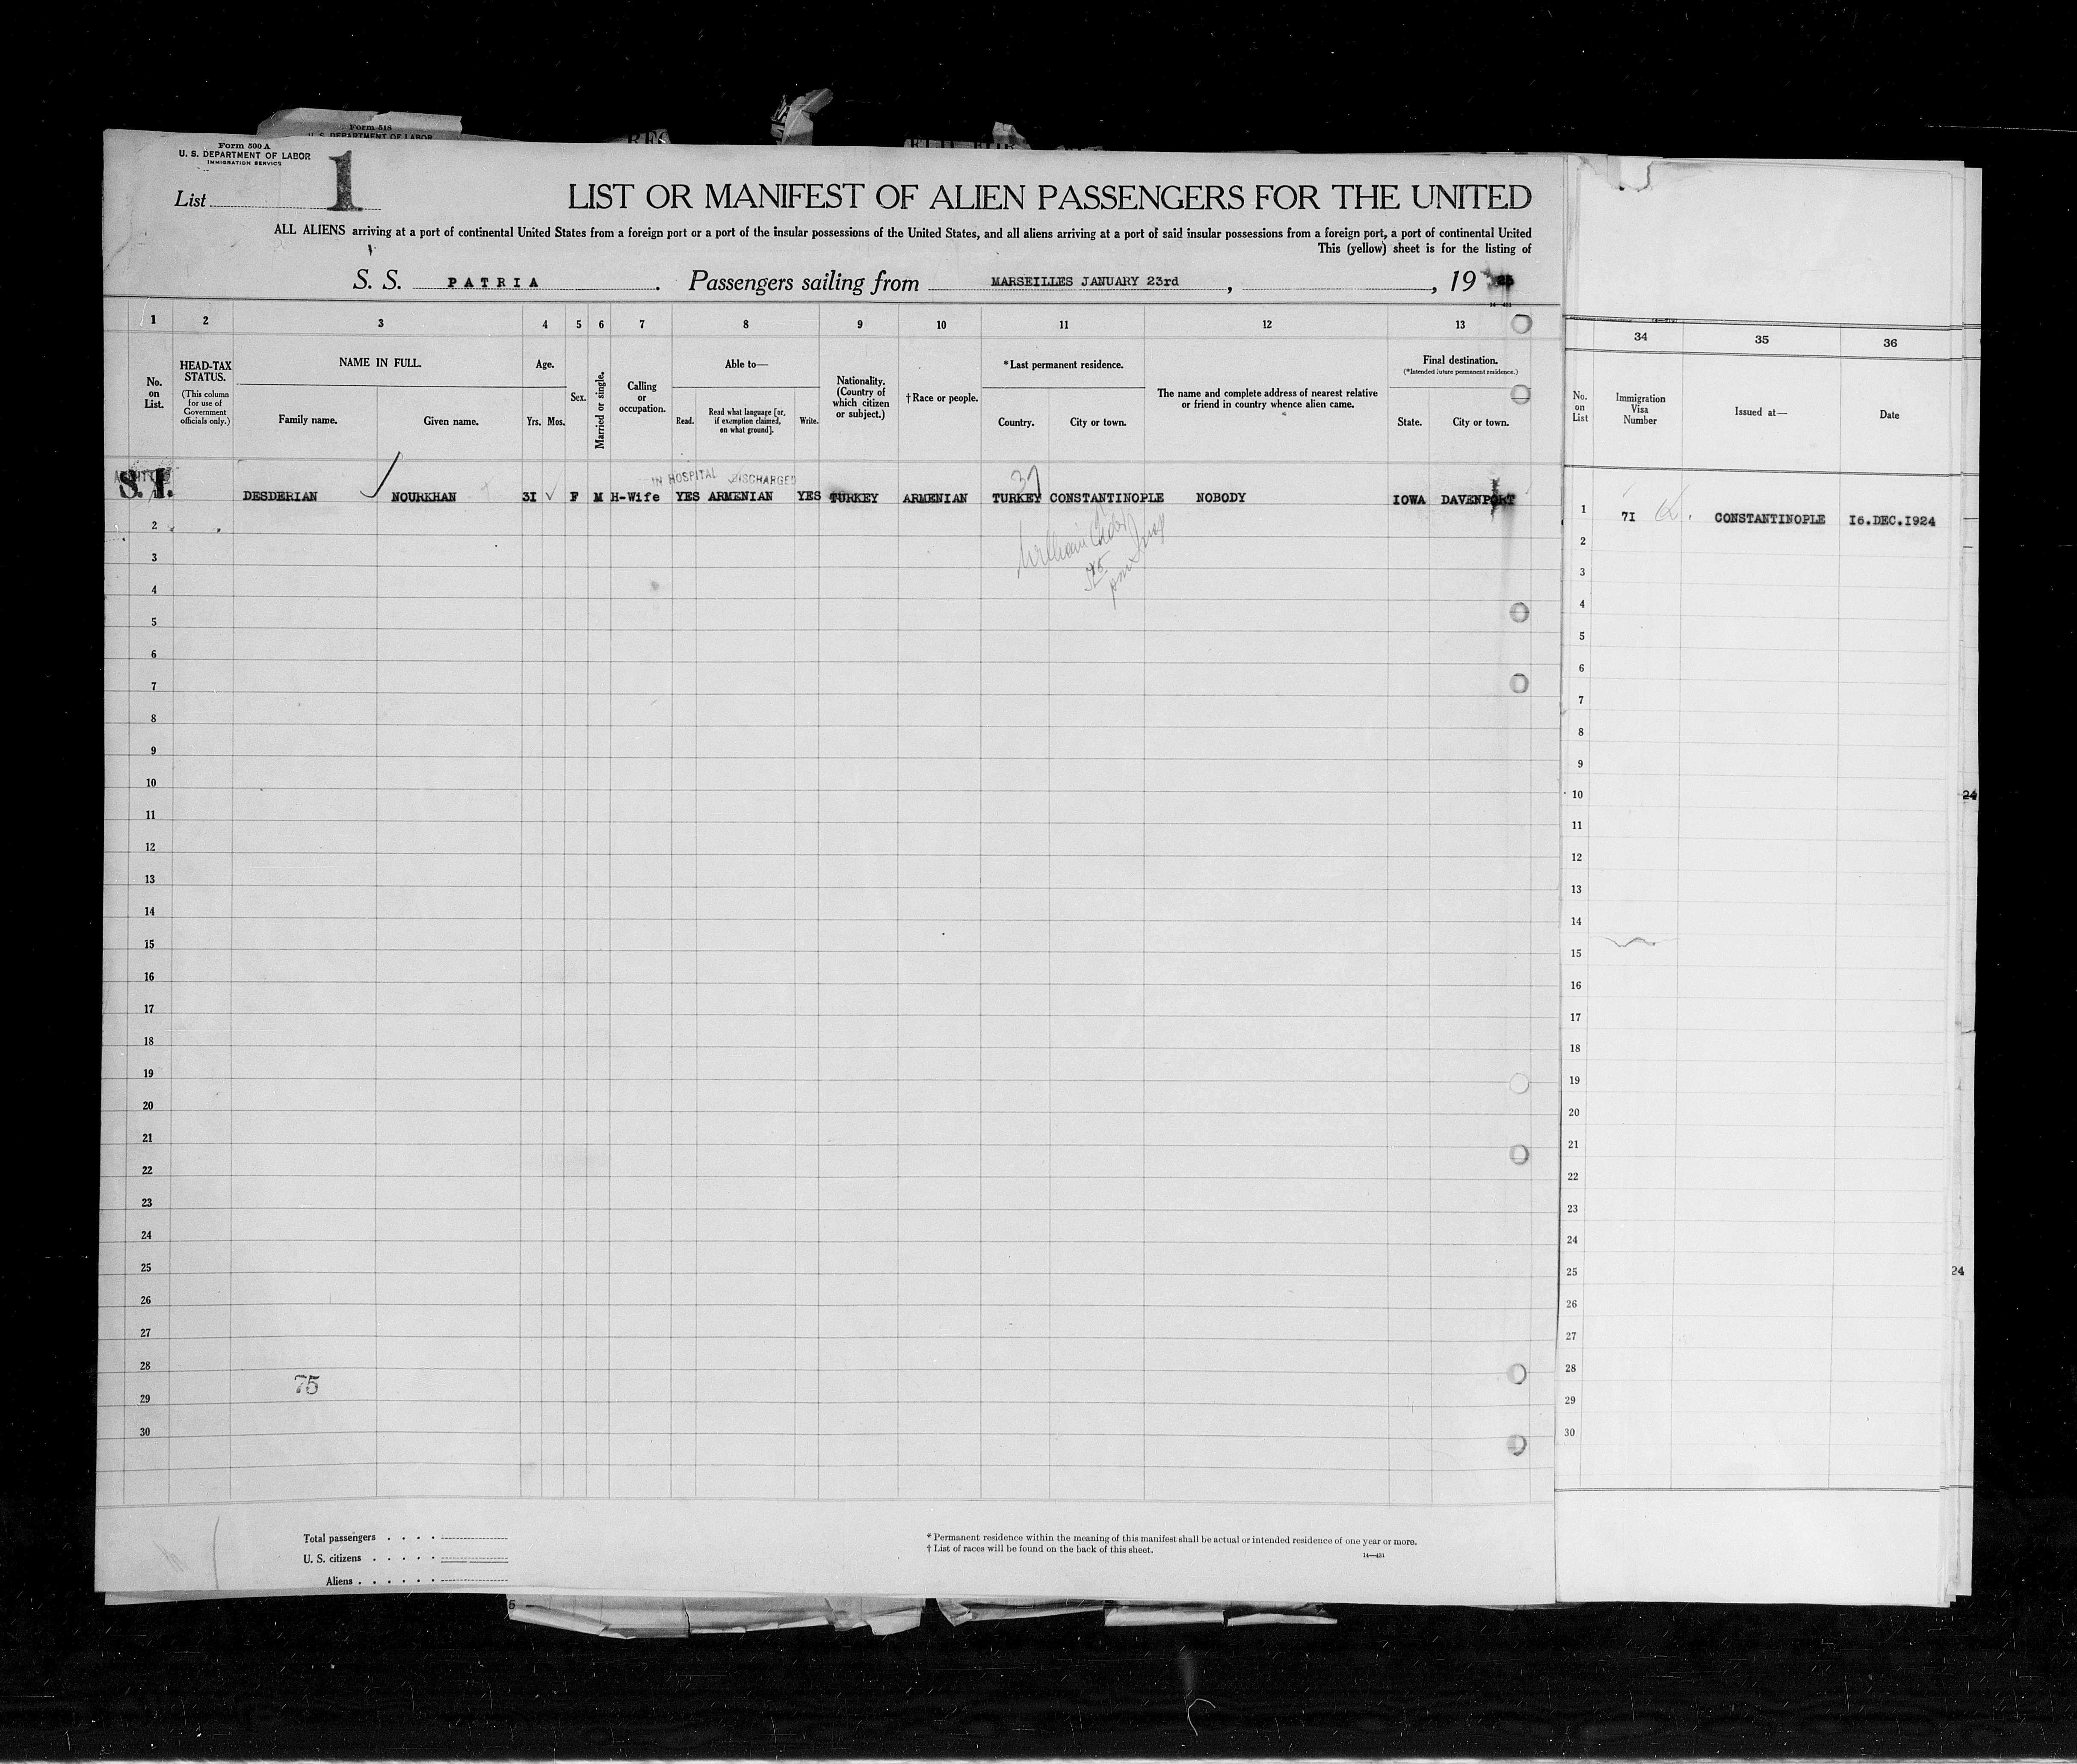 Form 518
U. S. DEPARTMENT OF LABOR
Form 500 A
U. S. DEPARTMENT OF LABOR
IMMIGRATION SERVICE
List 1
LIST OR MANIFEST OF ALIEN PASSENGERS FOR THE UNITED
ALL ALIENS arriving at a port of continental United States from a foreign port or a port of the insular possessions of the United States, and all aliens arriving at a port of said insular possessions from a foreign port, a port of continental United
This (yellow) sheet is for the listing of
S. S. PATRIA. Passengers sailing from MARSEILLES JANUARY 23rd, , 19 25
14—431
1 2 3 4 5 6 7 8 9 10 11 12 13
34 35 36
No. on List.
HEAD-TAX STATUS.
(This column for use of Government officials only.)
NAME IN FULL.
Family name. Given name.
Age.
Yrs. Mos.
Sex.
Married or single.
Calling or occupation.
Able to—
Read. Read what language [or, if exemption claimed, on what ground]. Write.
Nationality. (Country of which citizen or subject.)
† Race or people.
* Last permanent residence.
Country. City or town.
The name and complete address of nearest relative or friend in country whence alien came.
Final destination.
(*Intended future permanent residence.)
State. City or town.
No. on List
Immigration Visa Number
Issued at—
Date
IN HOSPITAL DISCHARGED
37
S.I. DESDERIAN NOURKHAN 3I F M H-Wife YES ARMENIAN YES TURKEY ARMENIAN TURKEY CONSTANTINOPLE NOBODY IOWA DAVENPORT
1 7I CONSTANTINOPLE I6.DEC.I924
William
2 2
3 3
4 4
5 5
6 6
7 7
8 8
9 9
10 10
24
11 11
12 12
13 13
14 14
15 15
16 16
17 17
18 18
19 19
20 20
21 21
22 22
23 23
24 24
25 25
24
26 26
27 27
28 28
75
29 29
30 30
Total passengers . . . .
U. S. citizens . . . . .
Aliens . . . . . .
* Permanent residence within the meaning of this manifest shall be actual or intended residence of one year or more.
† List of races will be found on the back of this sheet.
14—431